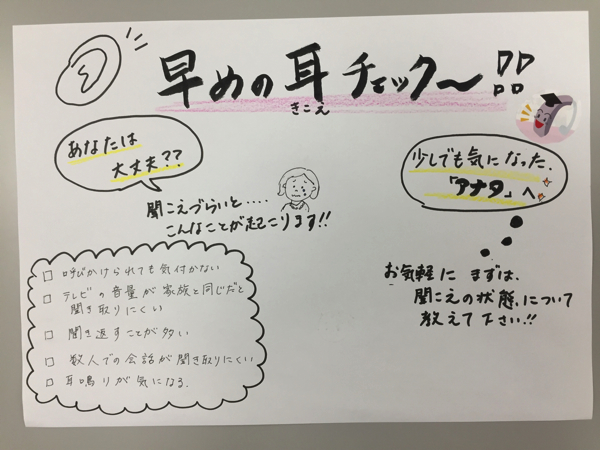 早めの耳チェック～!!
きこえ
あなたは
大丈夫??
聞こえづらいと‥‥
こんなことが起こります!!
□ 呼びかけられても気付かない
□ テレビの音量が家族と同じだと
聞き取りにくい
□ 聞き返すことが多い
□ 数人での会話が聞き取りにくい
□ 耳鳴りが気になる.
少しでも気になった.
「アナタ」へ
お気軽に まずは、
聞こえの状態について
教えて下さい!!